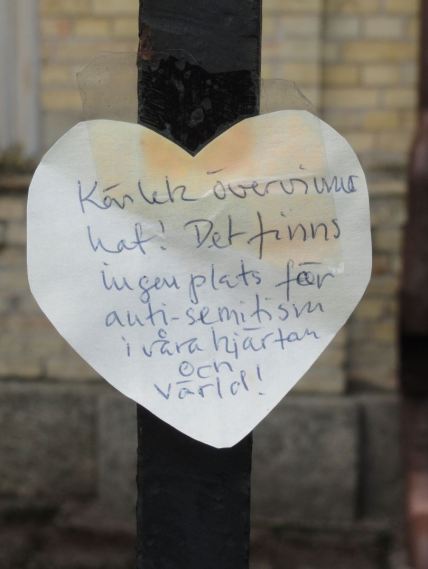 Kärlek övervinner
hat! Det finns
ingen plats för
anti-semitism
i våra hjärtan
och
värld!